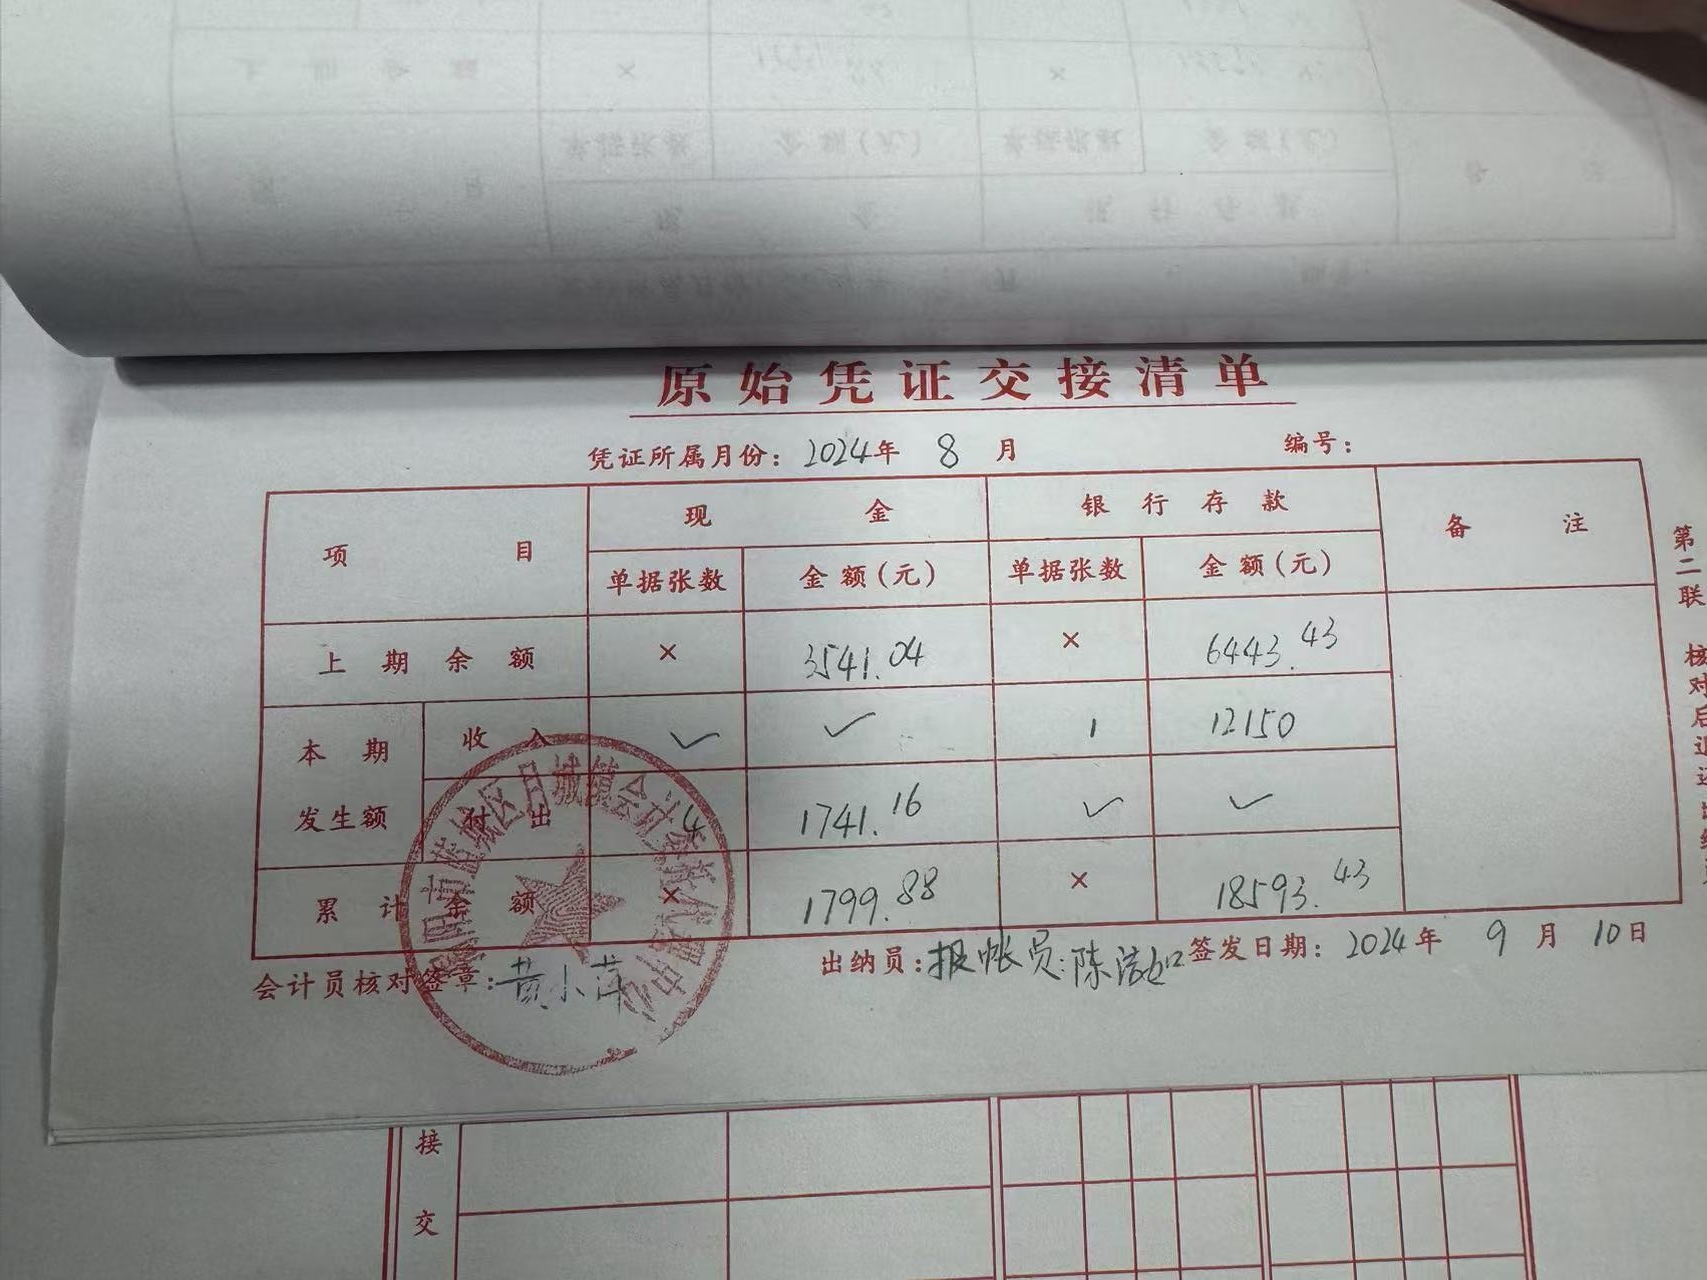 原始凭证交接清单
凭证所属月份：2024年 8 月 编号：
项目 现金 银行存款 备注
单据张数 金额(元) 单据张数 金额(元)
上期余额 × 3541.04 × 6443.43
本期发生额 收入 ✓ ✓ 1 12150
付出 4 1741.16 ✓ ✓
累计余额 × 1799.88 × 18593.43
会计员核对签章：黄小萍 出纳员：报帐员：陈 签发日期：2024年 9 月 10日
第二联 核对后退还出纳员
区月城镇会计委托代理中心
接
交